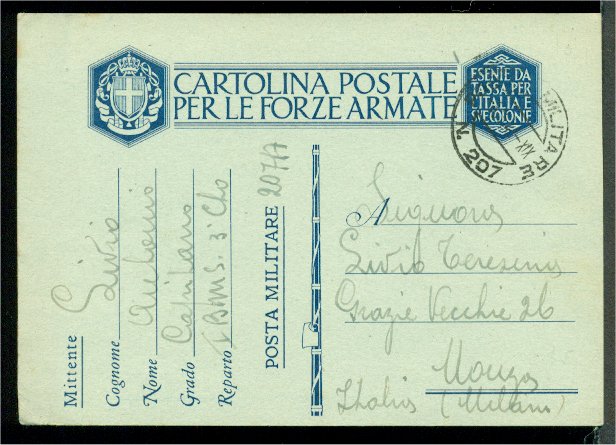 CARTOLINA POSTALE
PER LE FORZE ARMATE
ESENTE DA
TASSA PER
L'ITALIA E
SUE COLONIE
MILITARE
N. 207
XIX
Mittente
Cognome Livio
Nome Antonio
Grado Capitano
Reparto
POSTA MILITARE 207/A
A Signora
Livio Teresina
Grazie Vecchie 26
Monza
Italia (Milano)